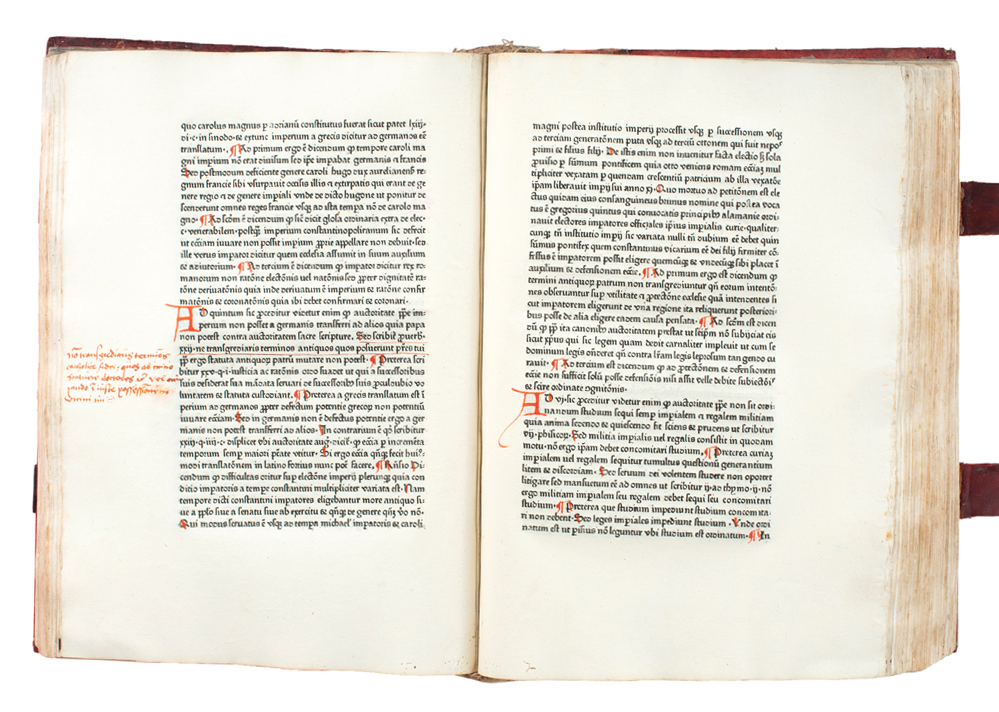 quo carolus magnus p adrianū constitutus fuerat sicut patet lxiij·
di·c·in sinodo·⁊ extunc imperium a grecis dicitur ad germanos eē
translatum·¶Ad primum ergo ē dicendum ꝙ tempore caroli ma
gni impium nō erat diuisum sed ip̄e impabat germanis ⁊ francis
Sed postmodum deficiente genere caroli hugo dux aurelianensis
regnum francie sibi vsurpauit occisis illis ⁊ extirpatis qui erant de ge
nere regio ⁊ de genere impiali vnde de dicto hugone ut ponitur de
scenderunt omnes reges francie vsq ad ista tempa nō de carolo ma
gno·¶Ad scd̄m ē dicendum ꝙ sic dicit glosa ordinaria extra de elec·
c·venerabilem·postq imperium constantinopolitanum sic defecit
ut ecciam iuuare non possit impium proprie appellare non debuit·sed
ille verus impator dicitur quem ecclesia assumit in suum auxilium
⁊ adiutorium·¶Ad tercium ē dicendum ꝙ impator dicitur rex ro
manorum non ratōne electōnis uel natōnis sed propter dignitatē ra
tōne deriuatōnis quia inde deriuatum ē imperium ⁊ ratōne confir
matōnis ⁊ coronatōnis quia ibi debet confirmari ⁊ coronari·
AD quintum sic proceditur videtur enim ꝙ auctoritate pape im
perium non posset a germanis transferri ad alios quia papa
non potest contra auctoritatem sacre scripture, Sed scribitur prouerb·
xxij·ne transgrediaris terminos antiquos quos posuerunt pr̄es tui
papa ergo statuta antiquoꝝ patrū mutare non potest·¶Preterea scri
bitur xxv·q·i·iusticia ac ratōnis ordo suadet ut qui a successoribus
suis desiderat sua mādata seruari de successoribus sui proculdubio vo
luntatem ⁊ statuta custodiant·¶Preterea a grecis translatum est i
perium ad germanos propter defectum potentie grecoꝝ non potentiū
iuuare ecciam·Sed in germanis non ē defectus potentie ergo a ger
manis non potest transferri ad alios·¶In contrarium ē qd̄ scribitur
xxiij·q·iiij·c·displicet vbi auctoritate aug·dicit·ꝙ eccia p incremēta
temporum semp maiori ptāte vtitur·Si ergo eccia qn̄q fecit huiꝰ
modi translatōnem in latino fortius nunc potest facere,¶Respōsio Di
cendum ꝙ difficultas oritur sup electōne imperij plerunq quia con
ditio impatoris a tempe constantini multipliciter variata est·Nam
tempore dicti constantini impatores eligebantur more antiquo si
ue a pp̄lo siue a senatu siue ab exercitu ⁊ qn̄q de genere qn̄q vo nō·
Qui modus seruatus ē vsq ad tempa michaelis impatoris ⁊ caroli
magni postea institutio imperij processit vsq p successionem vsq
ad terciam generatōnem puta vsq ad terciū ottonem qui fuit nepos
primi ⁊ filius filij·De istis enim non inuenitur facta electio sed sola
prouisio p summum pontificem quia otto veniens romam ecciaz mul
tipliciter vexatam p quendam crescentiū patricium ab illa vexatōe
ip̄am liberauit impij sui anno xj·Quo mortuo ad petitionem est ele
ctus quidam eius consanguineus brunus nomine qui postea voca
tus ē gregorius quintus qui conuocatis principibus alamanie ordi
nauit electores impatores officiales ip̄ius impialis curie·qualiter
cunq tn̄ institutio impij sic variata nulli tn̄ dubium eē debet quin
summus pontifex quem constantinus vicarium eē dei filij firmiter cō
fessus ē impatorem possit eligere quemcūq ⁊ vndecūq sibi placet i
auxilium ⁊ defensionem eccie,¶Ad primum ergo est dicendum ꝙ
termini antiquoꝝ patrum non transgrediuntur qn̄ eorum intentō
nes obseruantur sup vtilitate ⁊ protectōne ecclesie quā intendentes si
cut impatorem eligerunt de vna regione ita reliquerunt posteriori
bus posse de alia eligere eadem causa pensata·¶Ad scd̄m est dicen
dū ꝙ pp̄ ita canonibꝰ auctoritatem prestat ut seip̄m nō subijciat eis
sicut xp̄us qui sic legem quam dedit carnaliter impleuit ut cum se
dominum legis ostenderet qn̄ contra lr̄am legis leprosum tangendo cu
rauit·¶Ad tercium est dicendum ꝙ ad protectōnem ⁊ defensionem
eccie non sufficit solū posse defensionis nisi assit velle debite subiectōis
⁊ scire ordinate cognitōnis·
AD vj·sic proceditur videtur enim ꝙ auctoritate pape non sit ordi
nandum studium sequi semp impialem ⁊ regalem militiam
quia anima sedendo ⁊ quiescendo fit sciens ⁊ prudens ut scribitur
vij·phisicoꝝ·Sed militia impialis uel regalis consistit in quodam
motu·nō ergo ip̄am debet comitari studium,¶Preterea curiaz
impialem uel regalem sequitur tumultus questionū generantium
litem ⁊ discordiam·Sed seruum dei volentem studere non oportet
litigare sed mansuetum eē ad omnes ut scribitur ij·ad thymo·ij·nō
ergo militiam impialem seu regalem debet sequi seu comitari
studium·¶Preterea que studium impediunt studium concomita
ri non debent·Sed leges impiales impediunt studium·Vnde ordi
natum est ut parisius nō leguntur vbi studium est ordinatum·¶In